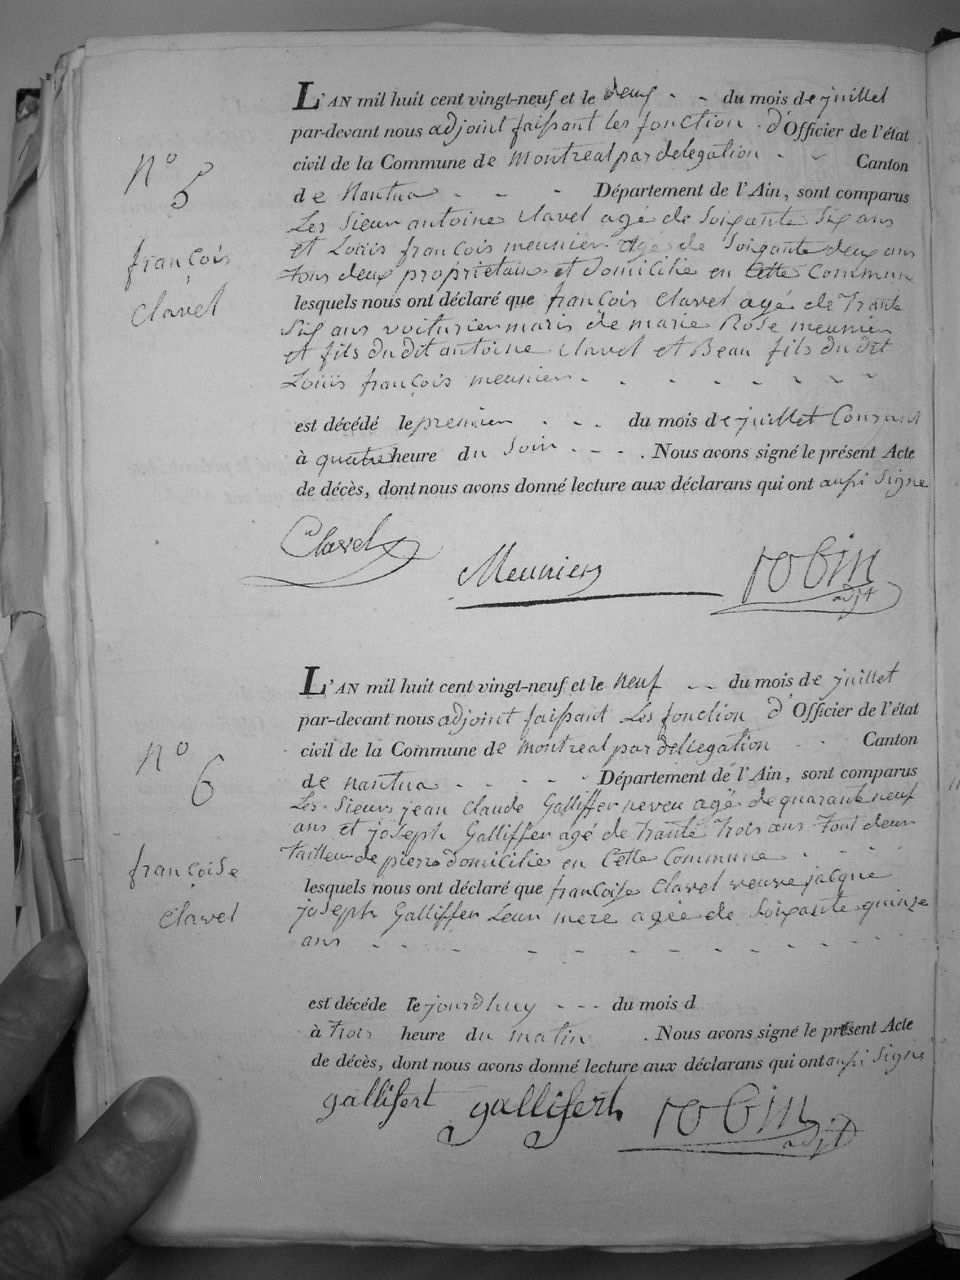 L'AN mil huit cent vingt-neuf et le deux - - du mois de juillet
par-devant nous adjoint faissant les fonction d'Officier de l'état
civil de la Commune de Montreal par delegation - - Canton
de Nantua - - - Département de l'Ain, sont comparus
Les Sieur antoine Clavel agé de Soixante Six ans
et Louis françois meunier agé de Soixante deux ans
tous deux proprietair et domicilié en Cette Commune
lesquels nous ont déclaré que françois Clavel agé de trante
Six ans voiturier maris de marie Rose meunier
et fils du dit antoine Clavel et Beau fils du dit
Louis françois meunier - - - - - - -
est décédé le premier - - - du mois de juillet Courant
à quatre heure du Soir - - - . Nous avons signé le présent Acte
de décès, dont nous avons donné lecture aux déclarans qui ont aussi Signé
N° 5
françois
Clavel
Clavel
Meunier
robin
adjt
L'AN mil huit cent vingt-neuf et le neuf - - du mois de juillet
par-devant nous adjoint faissant Les fonction d'Officier de l'état
civil de la Commune de Montreal par delegation - - Canton
de Nantua - - - - Département de l'Ain, sont comparus
Les Sieurs jean Claude Galliffer neveu agé de quarante neuf
ans et joseph Galliffer agé de trante trois ans tout deux
tailleur de pierre domicilié en Cette Commune - - -
lesquels nous ont déclaré que françoise Clavel veuve jacque
joseph Galliffer Leur mere agée de Soixante quinze
ans - - - - - - - - - -
est décédé le jourdhuy - - - du mois d
à trois heure du matin . Nous avons signé le présent Acte
de décès, dont nous avons donné lecture aux déclarans qui ont aussi Signé
N° 6
françoise
Clavel
gallifert
gallifert
robin
adjt